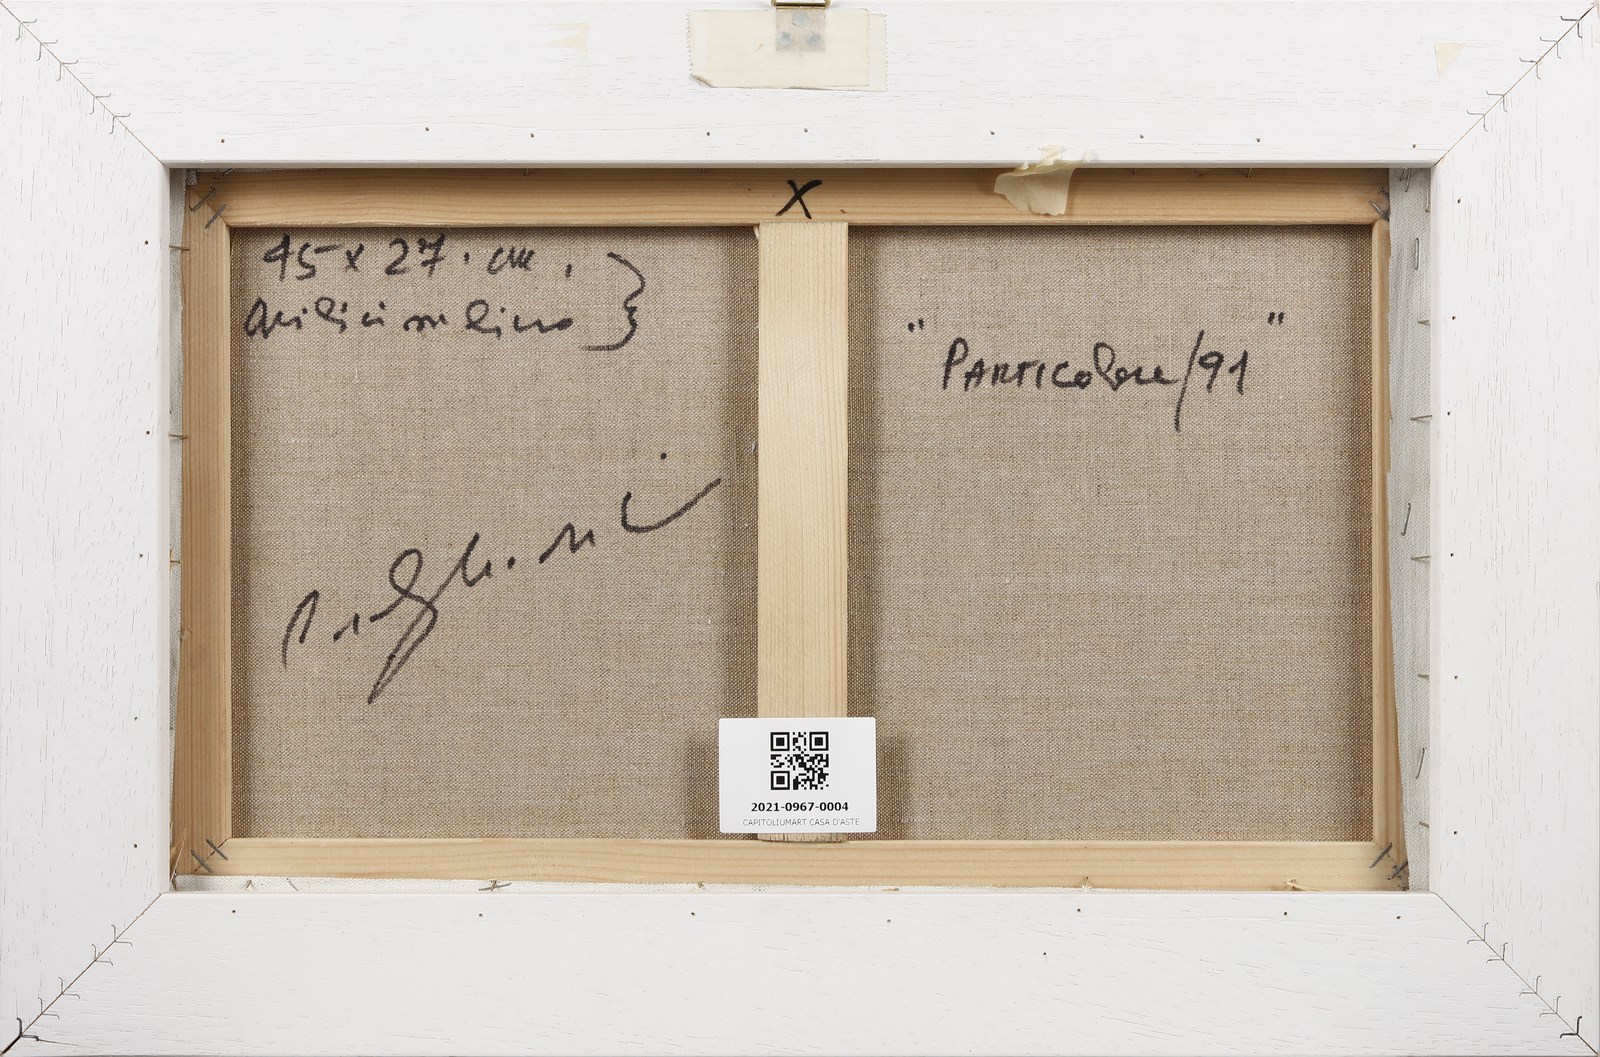 X
45 x 27. cm.
Acrilici su lino
"Particolare/91"
2021-0967-0004
CAPITOLIUMART CASA D'ASTE